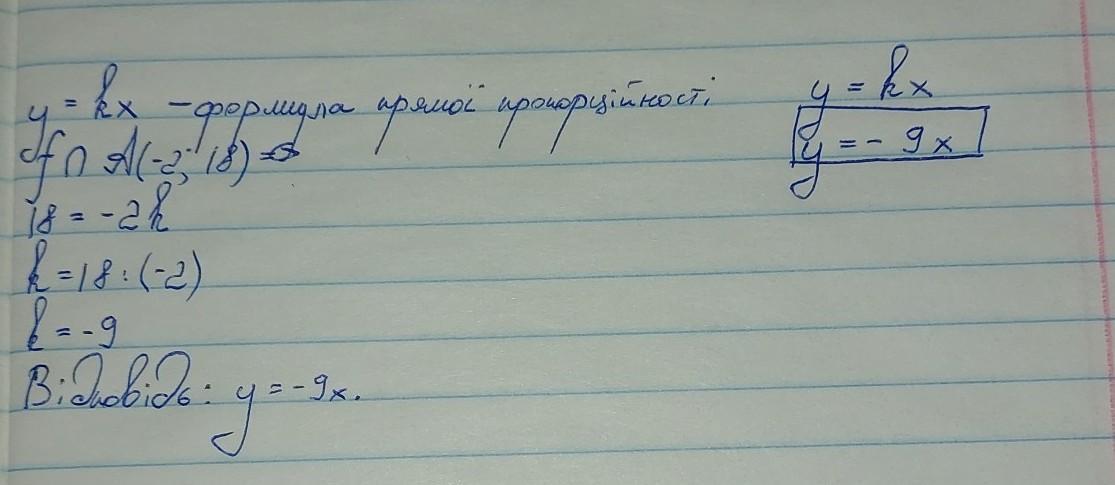 y = kx - формула прямої пропорційності.
f ∩ A(-2; 18)
18 = -2k
k = 18 : (-2)
k = -9
Відповідь: y = -9x.
y = kx
y = - 9x